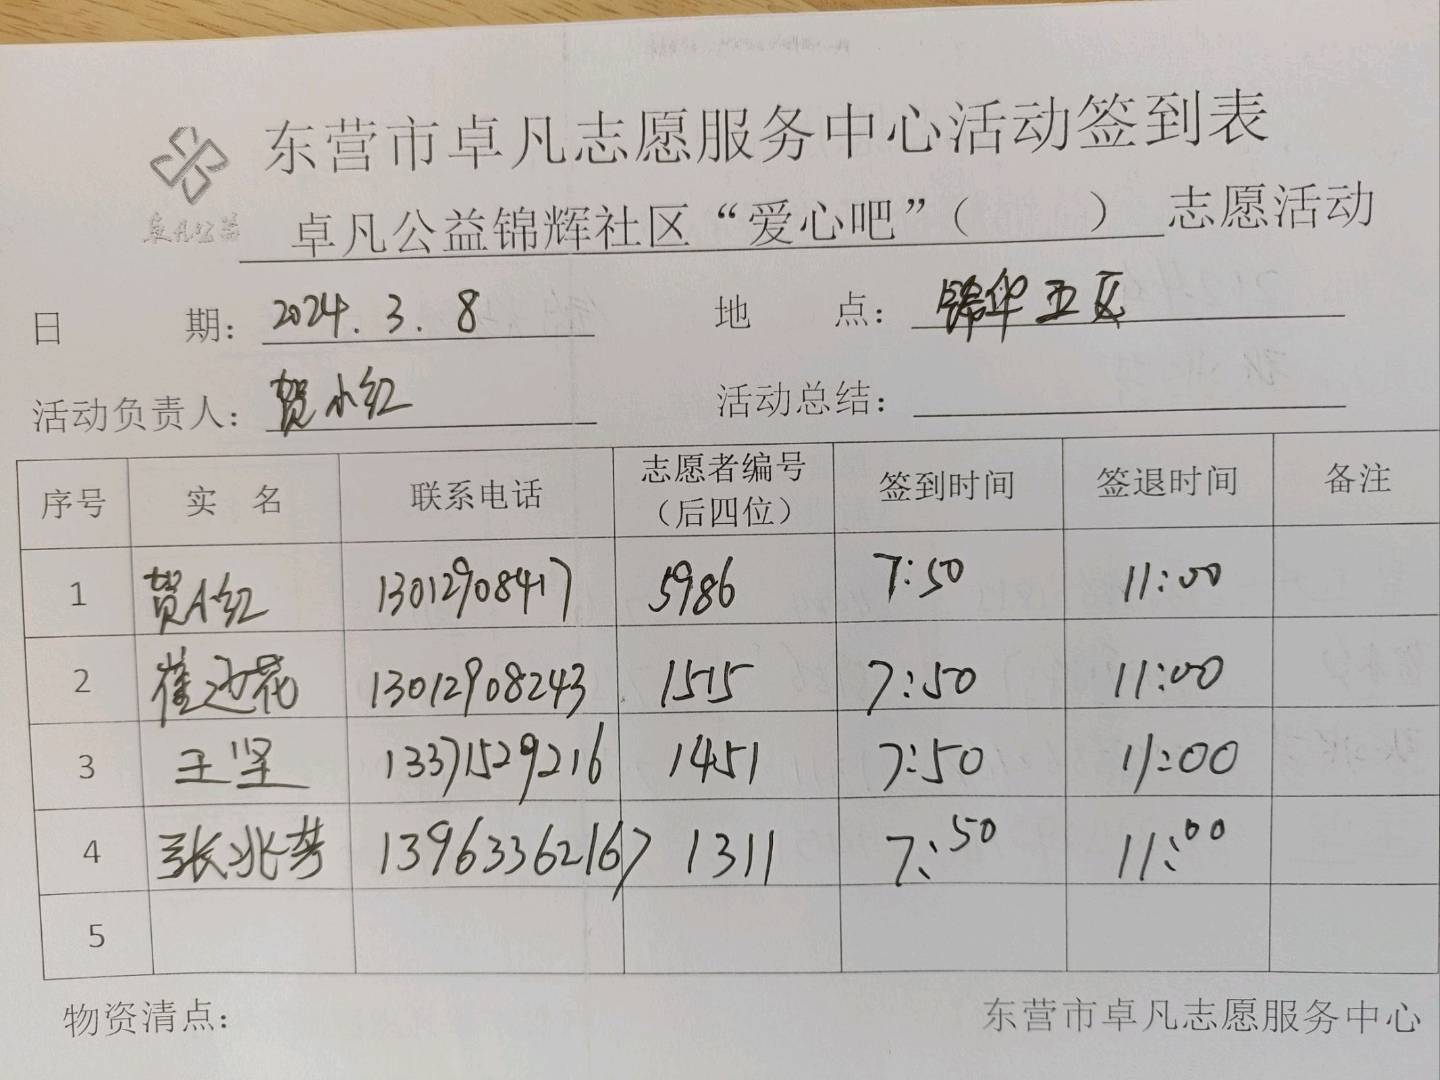 东营市卓凡志愿服务中心活动签到表
卓凡公益
卓凡公益锦辉社区“爱心吧”（ ）志愿活动
日 期：2024.3.8 地 点：锦华五区
活动负责人：贺小红 活动总结：
序号 实 名 联系电话 志愿者编号（后四位） 签到时间 签退时间 备注
1 贺小红 13012908417 5986 7:50 11:00
2 崔迎花 13012908243 1515 7:50 11:00
3 王坚 13371529216 1451 7:50 11:00
4 张兆芳 13963362167 1311 7:50 11:00
5
物资清点： 东营市卓凡志愿服务中心